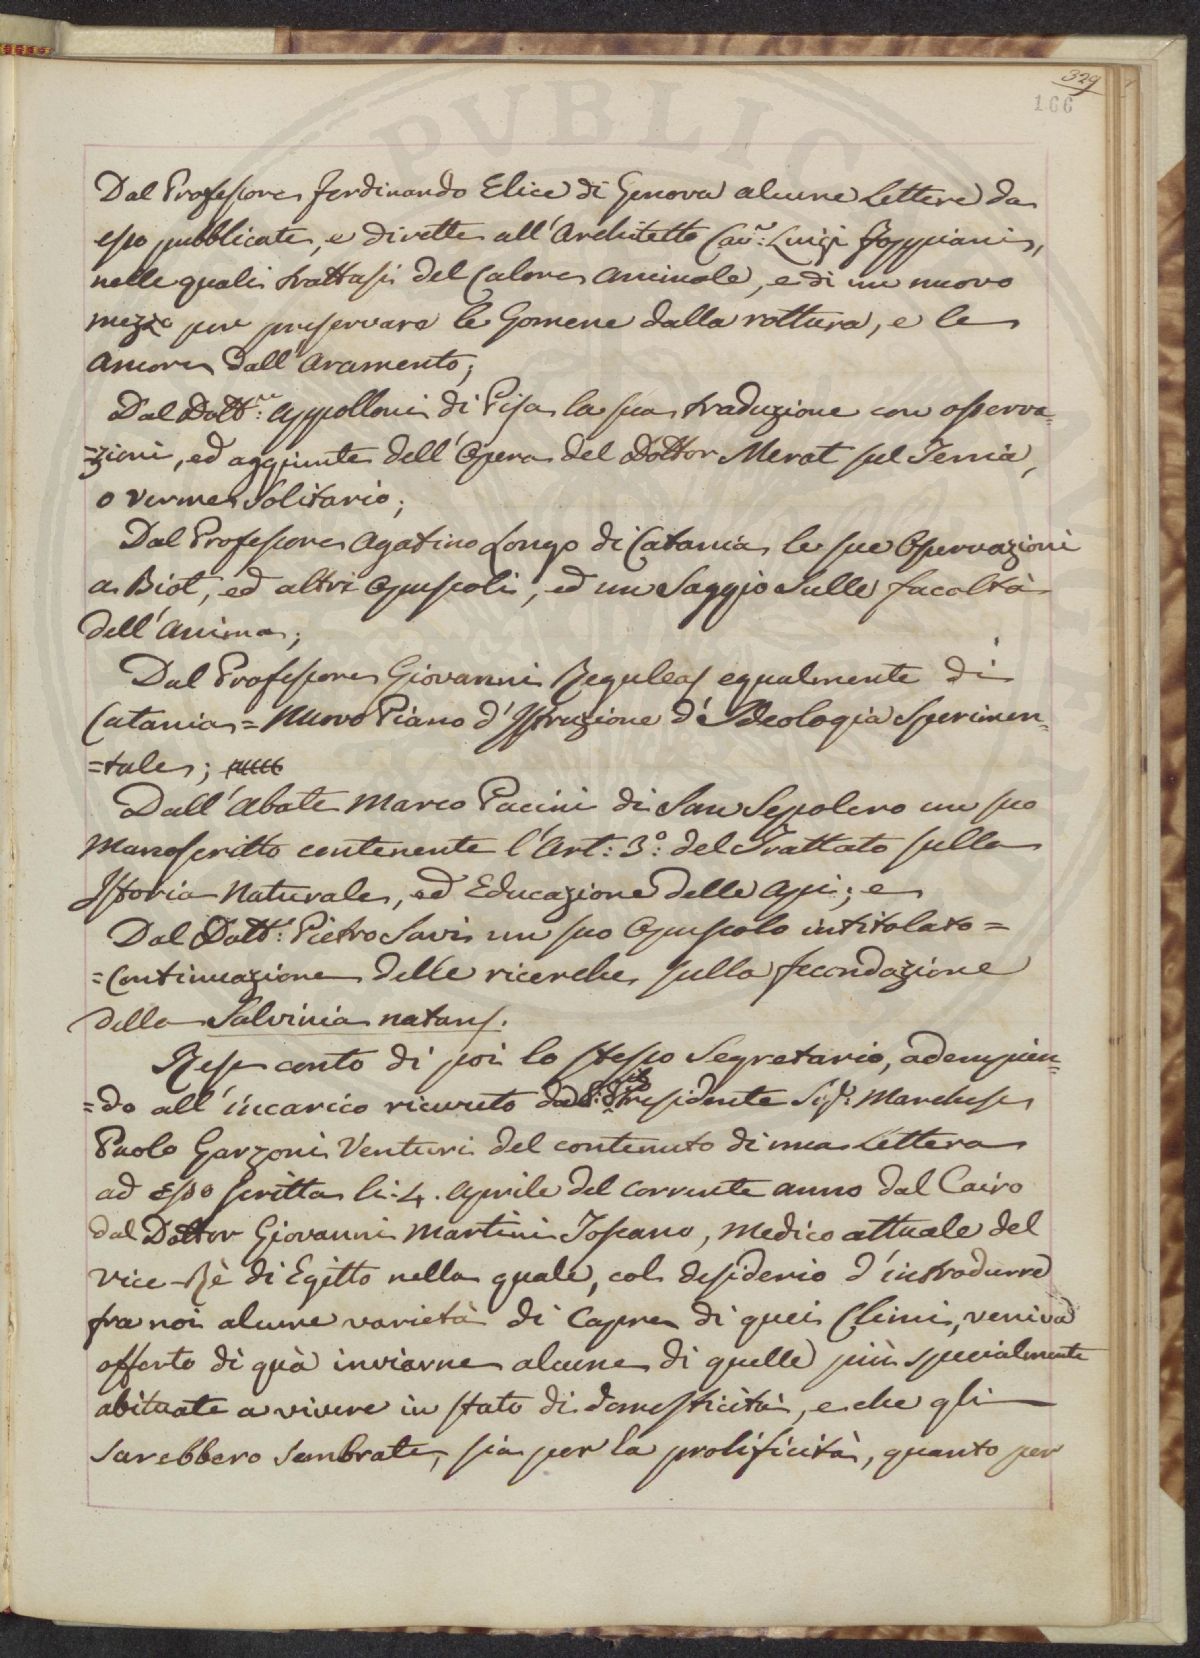 329
166
Dal Professore Ferdinando Elice di Genova alcune Lettere da
esso pubblicate, e dirette all'Architetto Cav.e: Luigi
nelle quali trattasi del Calore animale, e di un nuovo
mezzo per preservare le Gomene dalla rottura, e le
ancore dall'aramento;
Dal Dott.re: Appolloni di Pisa la sua traduzione con osserva=
=zioni, ed aggiunte dell'Opera del Dottor Merat sul Tenia,
o verme Solitario;
Dal Professore Agatino Longo di Catania le sue Osservazioni
a Biot, ed altri Opuscoli, ed un Saggio Sulle facoltà
dell'Anima;
Dal Professore Giovanni Reguleas egualmente di
Catania = Nuovo Piano d'Istruzione d'Ideologia Sperimen=
=tale;
Dall'Abate Marco Pacini di San Sepolcro un suo
Manoscritto contenente l'Art: 3°: del Trattato sulla
Istoria Naturale, ed Educazione delle Api; e
Dal Dott: Pietro Savi un suo Opuscolo intitolato =
= Continuazione delle ricerche sulla fecondazione
della Salvinia natans.
Rese conto di poi lo stesso Segretario, adempien=
=do all'incarico ricevuto dal Presidente Sig.r: Marchese
Paolo Garzoni Venturi del contenuto di una Lettera
ad esso scritta li 4. Aprile del corrente anno dal Cairo
dal Dottor Giovanni Martini Toscano, Medico attuale del
Vice-Rè di Egitto nella quale, col desiderio d'introdurre
fra noi alcune varietà di Capre di quei Climi, veniva
offerto di quà inviarne alcune di quelle più specialmente
abituate a vivere in stato di domesticità, e che gli
sarebbero sembrate, sia per la prolificità, quanto per